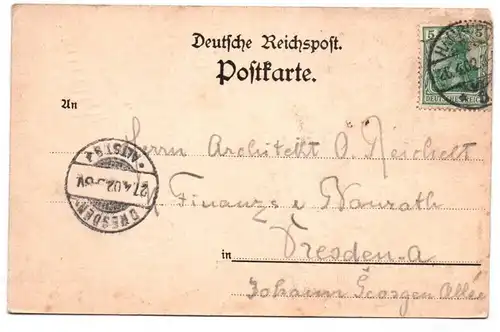 Deutsche Reichspost.
Postkarte.
5
5
HA
26.4.02
DEUTSCHES
An
Herrn Architekt O. Reichelt
DRESDEN-
27.4.02.
*ALTST. 24
Finanz u Baurath
in Dresden-A
Johann Georgen Allee